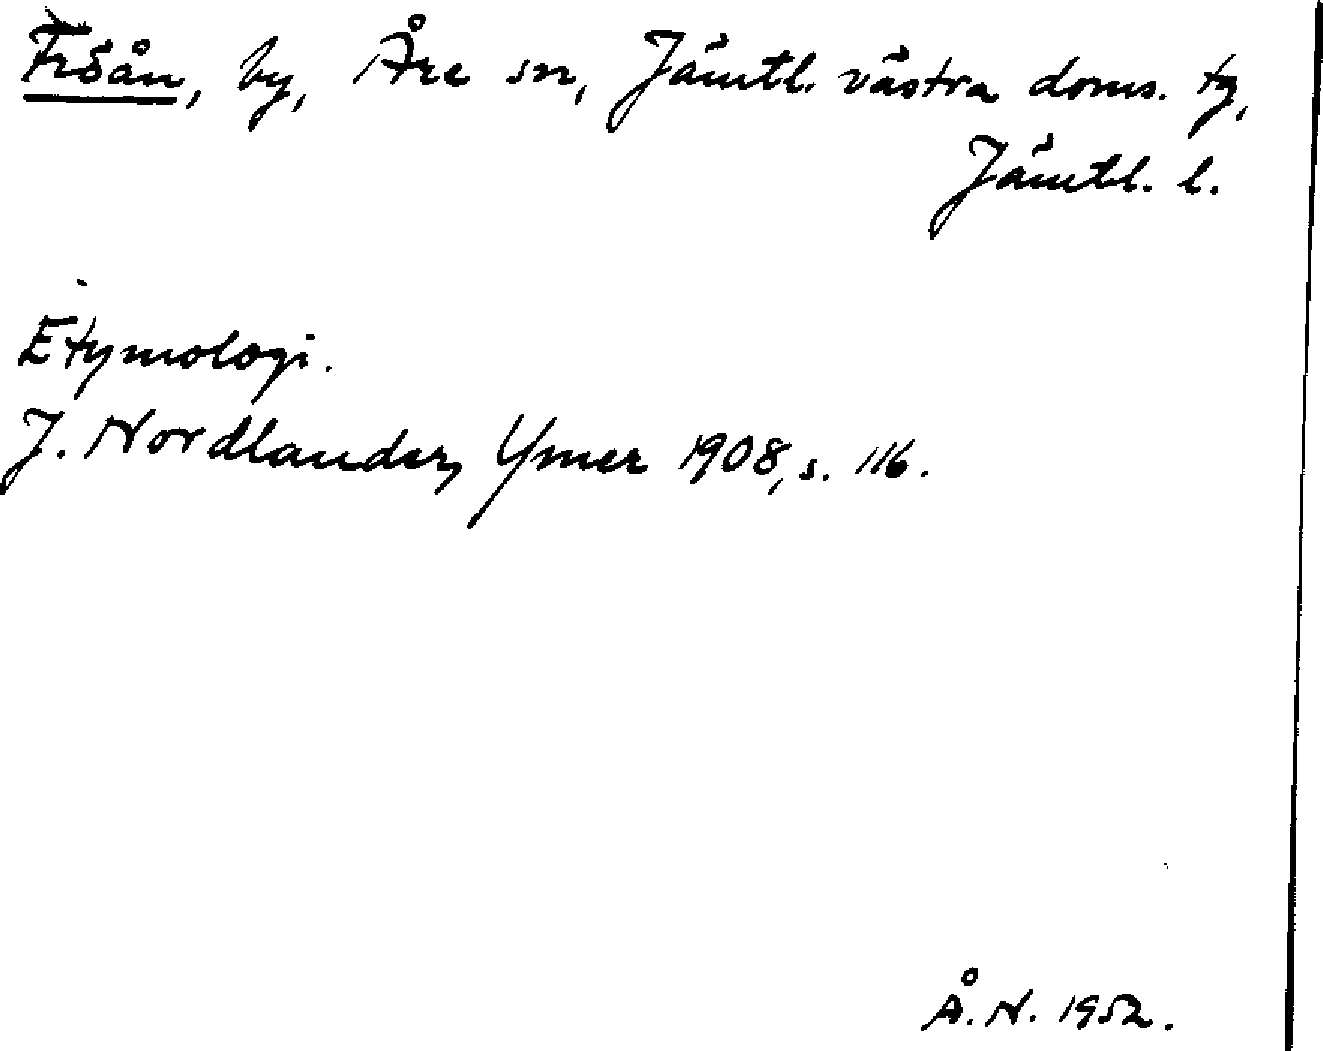 Fröån, by, Åre sn, Jämtl. västra doms. tg,
Jämtl. l.
Etymologi.
J. Nordlander, Ymer 1908, s. 116.
Å. N. 1952.